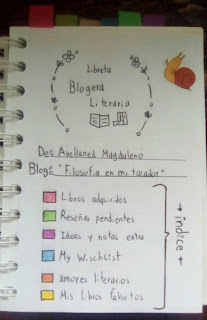 Libreta
Blogera
Literaria
De: Avellaned Magdaleno
Blog: "Filosofia en mi tocador"
Libros adquiridos
Reseñas pendientes
Ideas y notas extra
My Wischlist
amores literarios
Mis libros favoritos
→ indice ←